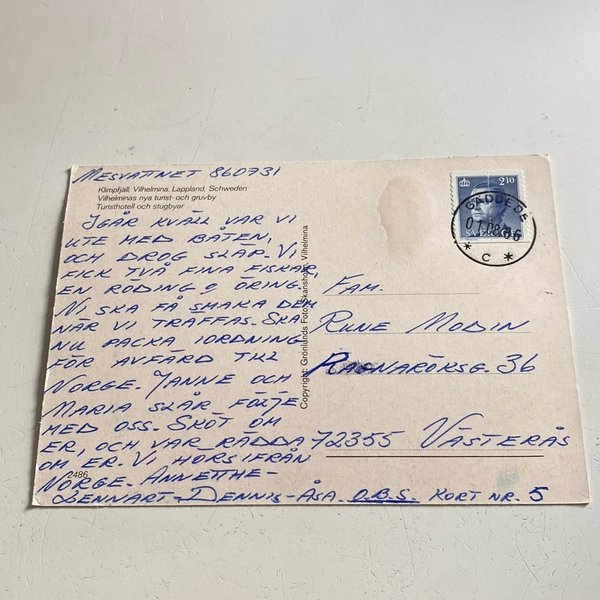 MESVATTNET 860731
Klimpfjäll, Vilhelmina, Lappland, Schweden
Vilhelminas nya turist- och gruvby
Turisthotell och stugbyar
IGÅR KVÄLL VAR VI
UTE MED BÅTEN,
OCH DROG SLÄP. VI
FICK TVÅ FINA FISKAR,
EN RÖDING O ÖRING.
NI SKA FÅ SMAKA DEM
NÄR VI TRÄFFAS. SKA
NU PACKA IORDNING
FÖR AVFÄRD TILL
NORGE. JANNE OCH
MARIA SLÅR FÖLJE
MED OSS. SKÖT OM
ER, OCH VAR RÄDDA
OM ER. VI HÖRS IFRÅN
NORGE. ANNETTHE-
LENNART-DENNIS-ÅSA. O.B.S. KORT NR. 5
2486
Copyright: Grönlunds Foto, Skansholm, Vilhelmina
210
GÄDDEDE
C
FAM.
RUNE MODIN
RAGNARÖKSG. 36
72355 VÄSTERÅS